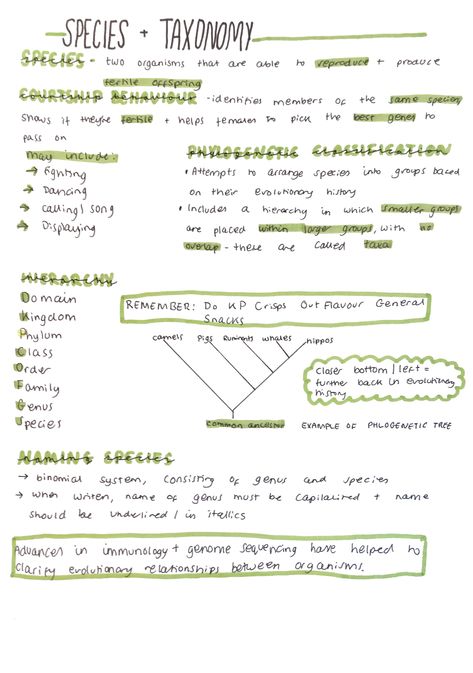 SPECIES + TAXONOMY
SPECIES - two organisms that are able to reproduce + produce
fertile offspring
COURTSHIP BEHAVIOUR - identifies members of the same species,
shows if they're fertile + helps females to pick the best genes to
pass on
may include:
→ Fighting
→ Dancing
→ calling / song
→ Displaying
PHYLOGENETIC CLASSIFICATION
• Attempts to arrange species into groups based
on their evolutionary history
• Includes a hierarchy in which smaller groups
are placed within larger groups, with no
overlap - these are called taxa
HIERARCHY
Domain
Kingdom
Phylum
Class
Order
Family
Genus
Species
REMEMBER: Do KP Crisps Out Flavour General
Snacks
camels pigs Ruminants whales hippos
closer bottom / left =
further back in evolutionary
history
common ancestor EXAMPLE OF PHLOGENETIC TREE
NAMING SPECIES
→ binomial system, consisting of genus and species
→ when written, name of genus must be capitalized + name
should be underlined / in italics
Advances in immunology + genome sequencing have helped to
clarify evolutionary relationships between organisms.